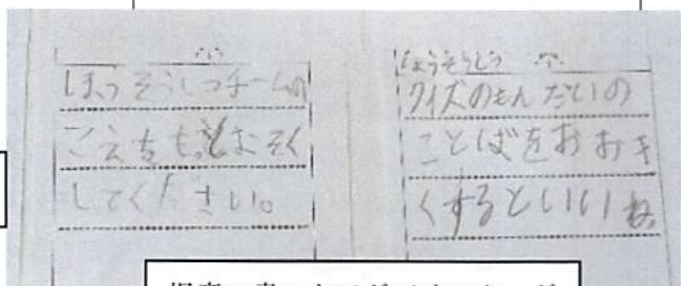 ほうそうしつチームの
こえをもっとおそく
してください。
クイズのもんだいの
ことばをおおき
くするといいね。